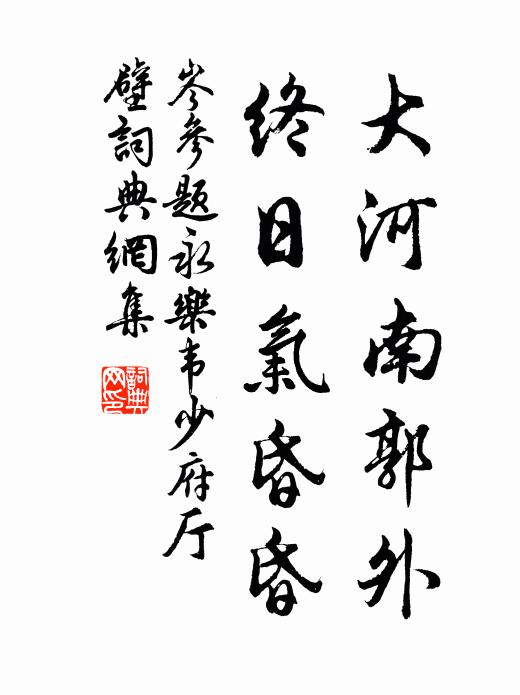 大河南郭外
終日氣昏昏
岑參題永樂韦少府厅
壁詞典網集
詞典
网印